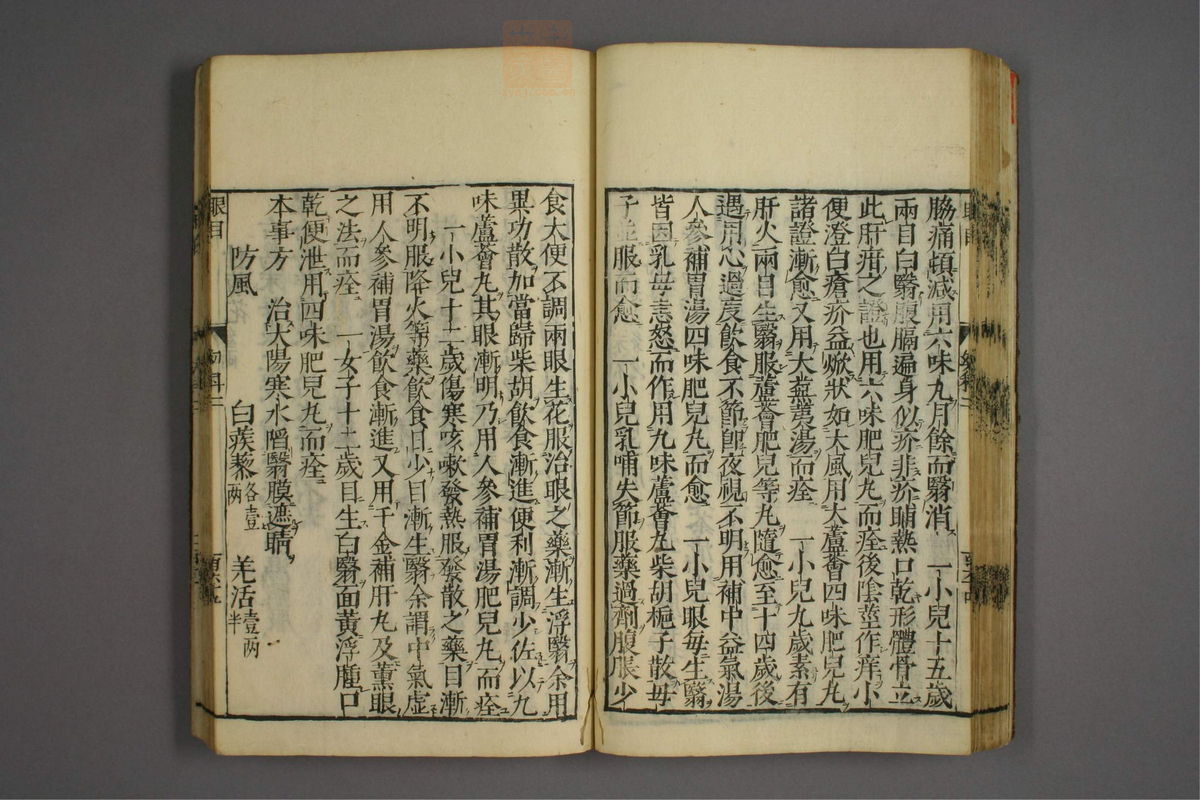 脇痛頓減用六味丸月餘而翳消 一小兒十五歲
兩目白翳腹膈遍身似疥非疥晡熱口乾形體骨立
此肝疳之證也用六味肥兒丸而痊後陰莖作痒小
便澄白瘡疥益嫰狀如大風用大蘆薈四味肥兒丸
諸證漸愈又用大益黃湯而痊 一小兒九歲素有
肝火兩目生翳服蘆薈肥兒等丸隨愈至十四歲後
遇用心過度飲食不節卽夜視不明用補中益氣湯
人參補胃湯四味肥兒丸而愈 一小兒眼每生翳
皆因乳母恚怒而作用九味蘆薈丸柴胡梔子散母
子並服而愈 一小兒乳哺失節服藥過劑腹脹少
食大便不調兩眼生花服治眼之藥漸生浮翳余用
異功散加當歸柴胡飲食漸進便利漸調少佐以九
味蘆薈丸其眼漸明乃用人參補胃湯肥兒丸而痊
一小兒十二歲傷寒咳嗽發熱服發散之藥目漸
不明服降火等藥飲食日少目漸生翳余謂中氣虛
用人參補胃湯飲食漸進又用千金補肝丸及薰眼
之法而痊 一女子十二歲目生白翳面黃浮腫口
乾便泄用四味肥兒丸而痊
本事方 治太陽寒水陷翳膜遮睛
防風 白蒺藜各壹兩 羌活壹兩半
眼目